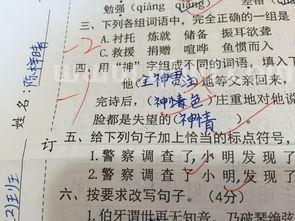 勉强(qiáng qiǎng) 差错
三、下列各组词语中，完全正确的一组是
A.衬托 炼就 储备 振耳欲聋
C.救援 捐赠 喧哗 鱼惯而入
四、用“神”字组成不同的词语，填入下
他(全神贯注)地等父亲回来，
完诗后，(神情色)庄重地对他说
脸都是失望的(神情)
五、给下列句子加上恰当的标点符号，
1.警察调查了，小明发现了
2.警察调查了小明，发现了
六、按要求改写句子。(4分)
1.伯牙谓世再无知音，乃破琴绝弦
姓名：陈梓晴
订